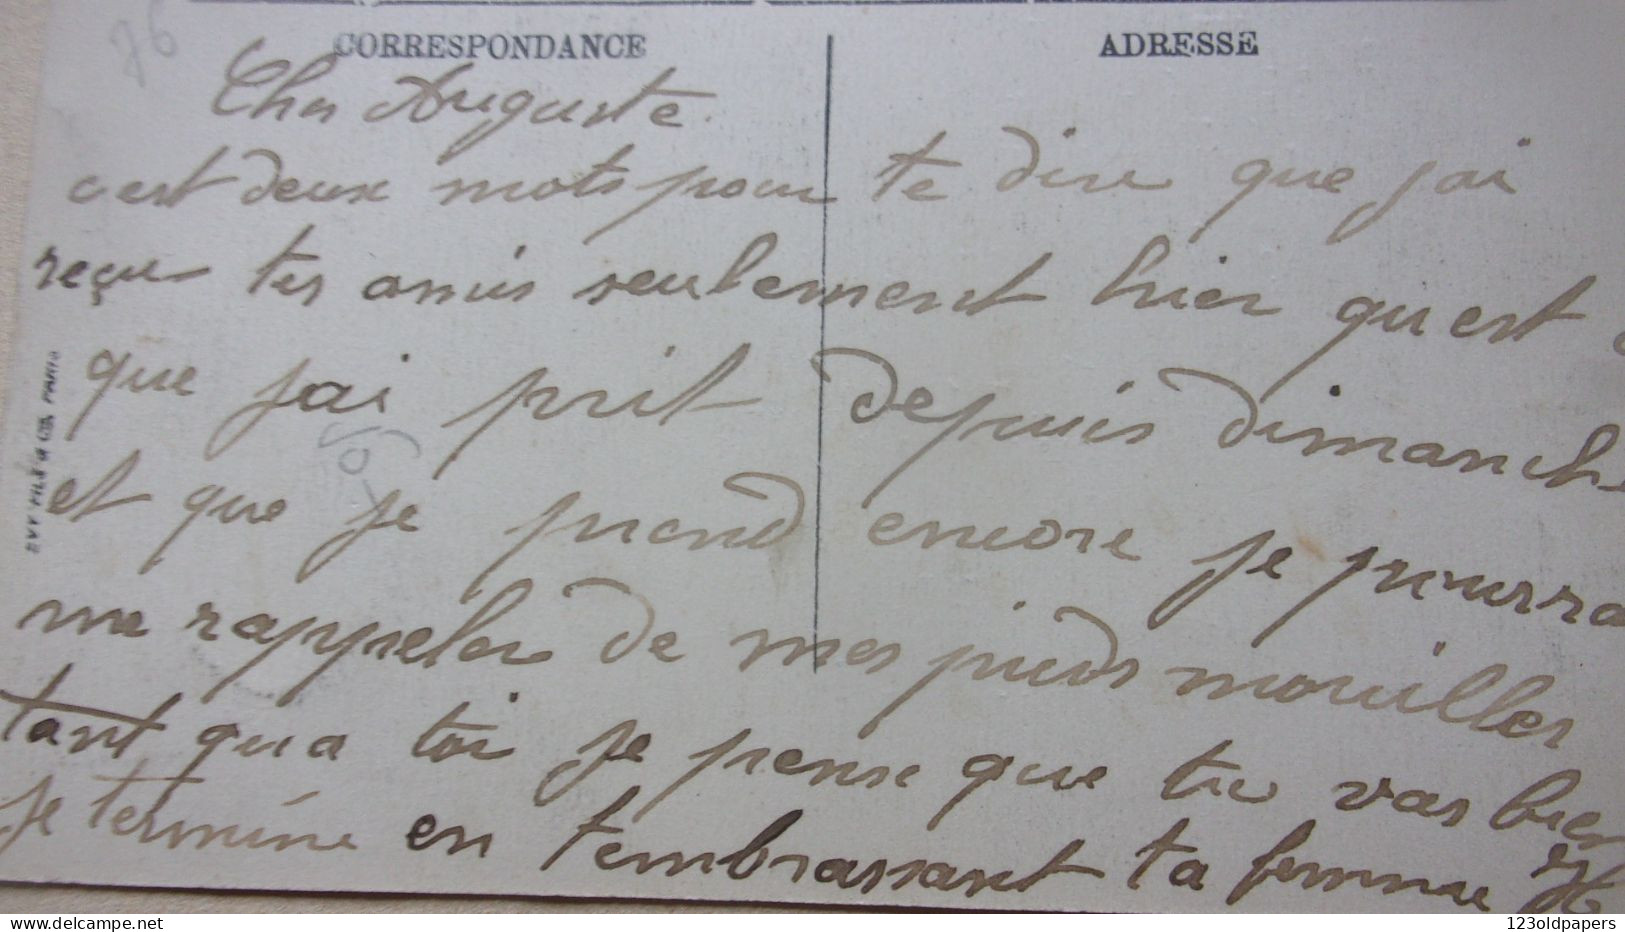 76
CORRESPONDANCE
ADRESSE
Cher Auguste.
c est deux mots pour te dire que jai
reçu tes amis seulement hier qu est
que jai prit depuis dimanche
et que je prend encore je pourra
me rappeler de mes pieds mouilles
tant qu a toi je pense que tu vas bien
je termine en tembrassant ta femme
FILS & Cie PARIS
123oldpapers